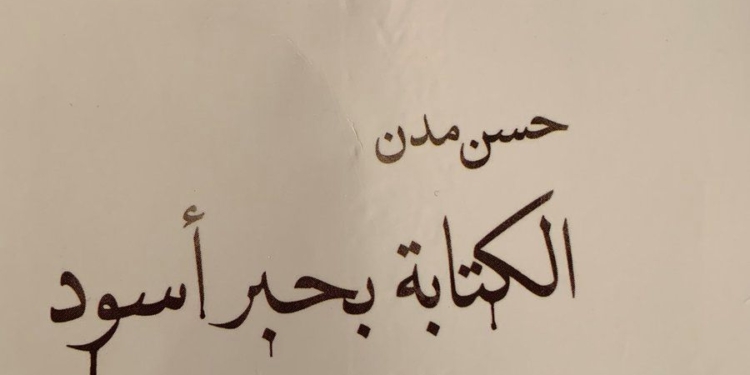 حسن مدن
الكتابة بحبر أسود